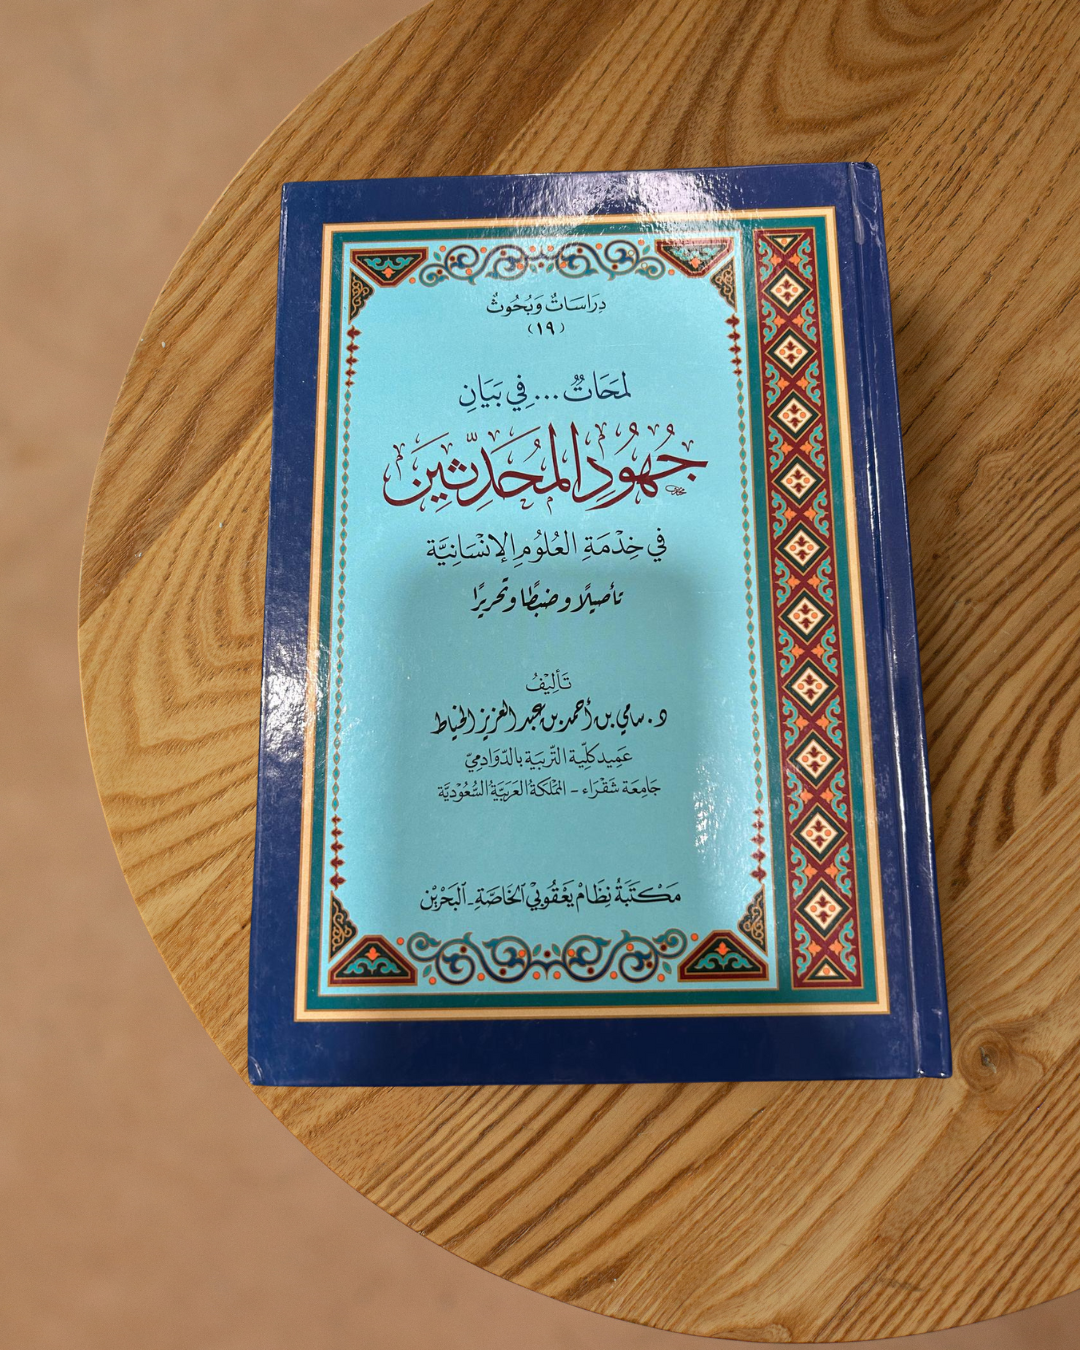 دِرَاسَاتٌ وَبُحُوثٌ
(١٩)
لمَحَاتٌ ... فِي بَيَانِ
جُهُودِ المُحَدِّثِينَ
في خِدْمَةِ العُلُومِ الإنْسَانِيَّة
تأصيلًا وضبطًا وتحريرًا
تَأليْفُ
د. سامي بن أحمد بن عبد العزيز الخياط
عَمِيد كلِّية التَّربيَة بالدّوَادمِيّ
جَامِعَة شَقْرَاء - المَمْلكَةُ العَرَبيَّةُ السُّعُوْديَّة
مَكتَبَةُ نِظَامْ يَعْقُوبْيْ الخَاصَّةِ - البَحْرَيْن